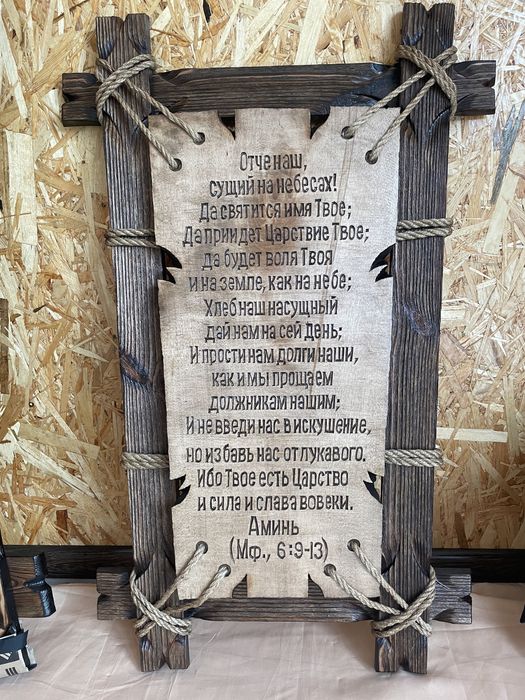 Отче наш,
сущий на небесах!
Да святится имя Твое;
Да приидет Царствие Твое;
да будет воля Твоя
и на земле, как на небе;
Хлеб наш насущный
дай нам на сей день;
И прости нам долги наши,
как и мы прощаем
должникам нашим;
И не введи нас в искушение,
но избавь нас от лукавого.
Ибо Твое есть Царство
и сила и слава вовеки.
Аминь
(Мф., 6:9-13)